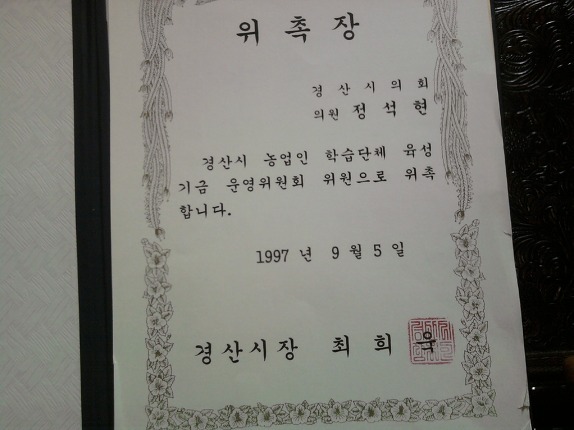 위촉장
경산시의회
의원 정석현
경산시 농업인 학습단체 육성
기금 운영위원회 위원으로 위촉
합니다.
1997년 9월 5일
경산시장 최희욱